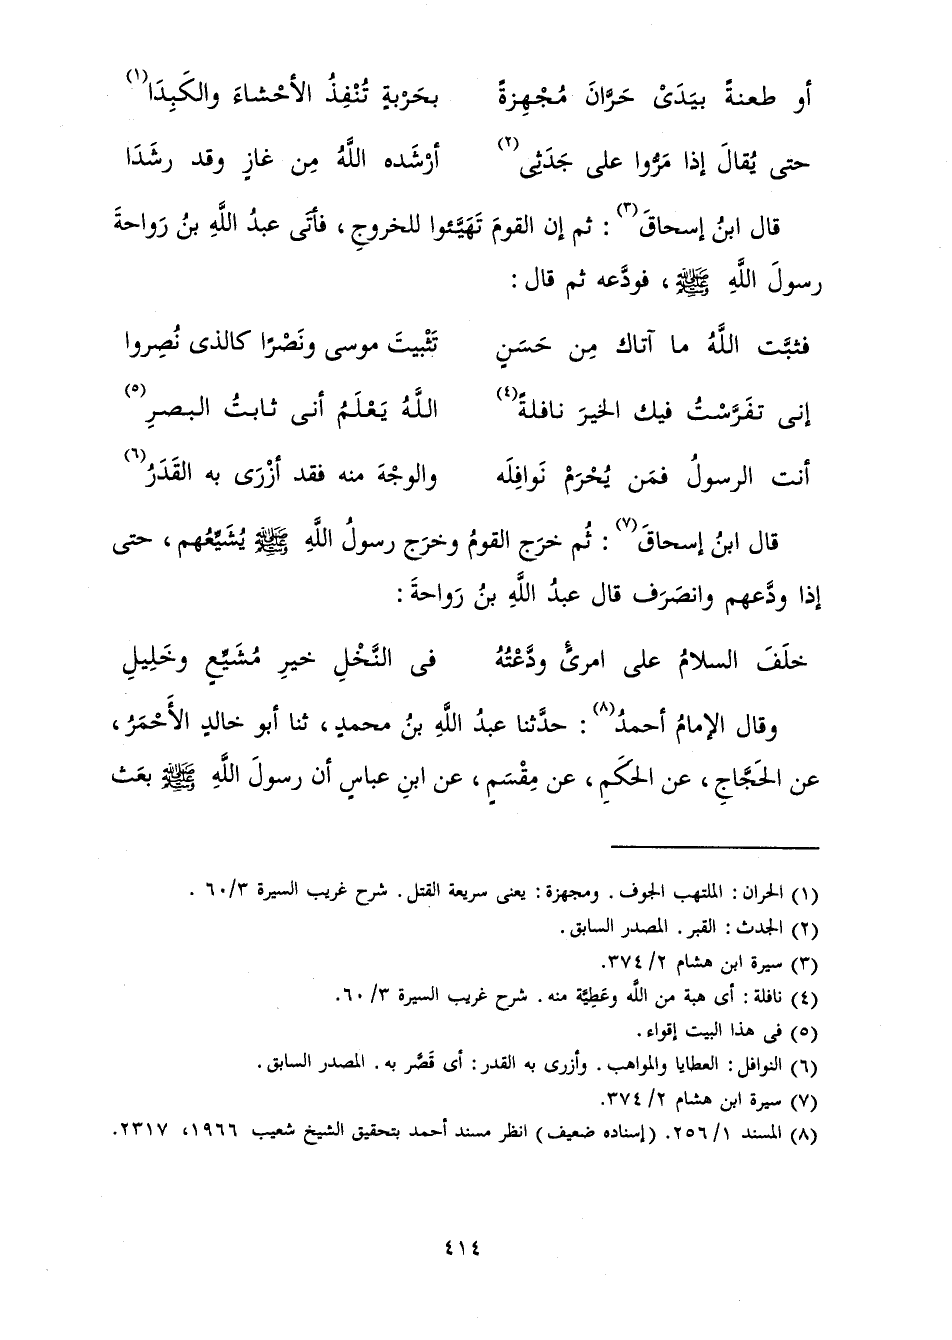 أو طعنةً بيَدَىْ حَرَّانَ مُجْهِزةً بحَرْبةٍ تُنْفِذُ الأحْشاءَ والكَبِدَا(١)
حتى يُقالَ إذا مَرُّوا على جَدَثِى(٢) أرْشَده اللَّهُ مِن غازٍ وقد رشَدَا
قال ابنُ إسحاقَ(٣) : ثم إن القومَ تَهَيَّئوا للخروجِ ، فأتَى عبدُ اللَّهِ بنُ رَواحةَ
رسولَ اللَّهِ ﷺ ، فودَّعه ثم قال :
فثبَّت اللَّهُ ما آتاك مِن حَسَنٍ تَثْبيتَ موسى ونَصْرًا كالذى نُصِروا
إنى تفَرَّسْتُ فيك الخيرَ نافلةً(٤) اللَّهُ يَعْلَمُ أنى ثابتُ البصرِ(٥)
أنت الرسولُ فمَن يُحْرَمْ نَوافِلَه والوجْهَ منه فقد أزْرَى به القَدَرُ(٦)
قال ابنُ إسحاقَ(٧) : ثُم خرَج القومُ وخرَج رسولُ اللَّهِ ﷺ يُشَيِّعُهم ، حتى
إذا ودَّعهم وانصَرَف قال عبدُ اللَّهِ بنُ رَواحةَ :
خلَفَ السلامُ على امرئٍ ودَّعْتُهُ فى النَّخْلِ خيرِ مُشَيِّعٍ وخَلِيلِ
وقال الإمامُ أحمدُ(٨) : حدَّثنا عبدُ اللَّهِ بنُ محمدٍ ، ثنا أبو خالدٍ الأَحْمَرُ ،
عن الحَجَّاجِ ، عن الحكَمِ ، عن مِقْسَمٍ ، عن ابنِ عباسٍ أن رسولَ اللَّهِ ﷺ بعَث
(١) الحران : الملتهب الجوف . ومجهزة : يعنى سريعة القتل . شرح غريب السيرة ٦٠/٣ .
(٢) الجدث : القبر . المصدر السابق .
(٣) سيرة ابن هشام ٢/ ٣٧٤.
(٤) نافلة : أى هبة من اللَّه وعَطِيَّة منه . شرح غريب السيرة ٣/ ٦٠.
(٥) فى هذا البيت إقواء .
(٦) النوافل : العطايا والمواهب . وأزرى به القدر : أى قَصَّر به . المصدر السابق .
(٧) سيرة ابن هشام ٢/ ٣٧٤.
(٨) المسند ١/ ٢٥٦. (إسناده ضعيف) انظر مسند أحمد بتحقيق الشيخ شعيب ١٩٦٦، ٢٣١٧.
٤١٤